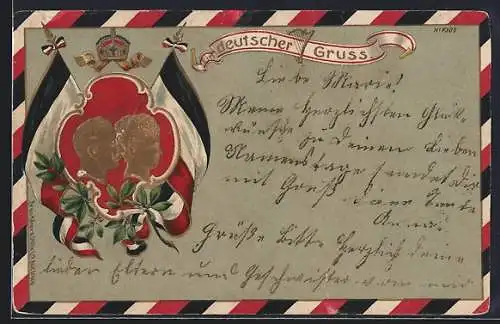 deutscher Gruss
Liebe Marie!
Meine herzlichsten Glück-
wünsche zu Deinem lieben
Namenstage sendet Dir
mit Gruß Deine Tante
Anna.
Grüße bitte herzlich Deine
lieben Eltern und Geschwister von mir